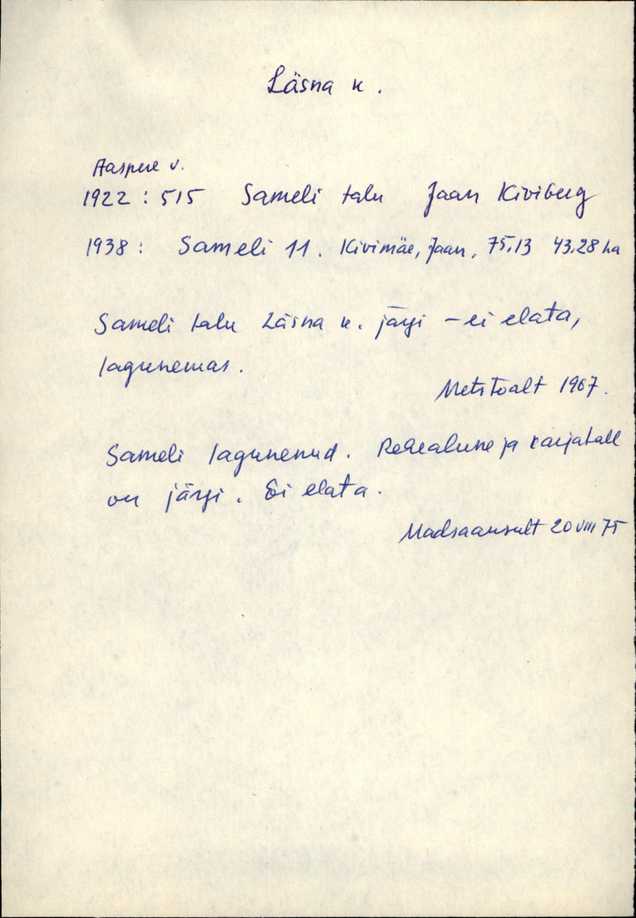 Läsna k.
Aaspere v.
1922: 515 Sameli talu Jaan Kiviberg
1938: Sameli 11. Kivimäe, Jaan, 75.13 43.28 ha
Sameli talu Läsna k. järgi – ei elata,
lagunemas.
Metstoalt 1967.
Sameli lagunenud. Rehealune ja karjatall
on järgi. Ei elata.
Madsaansult 20 VIII 75